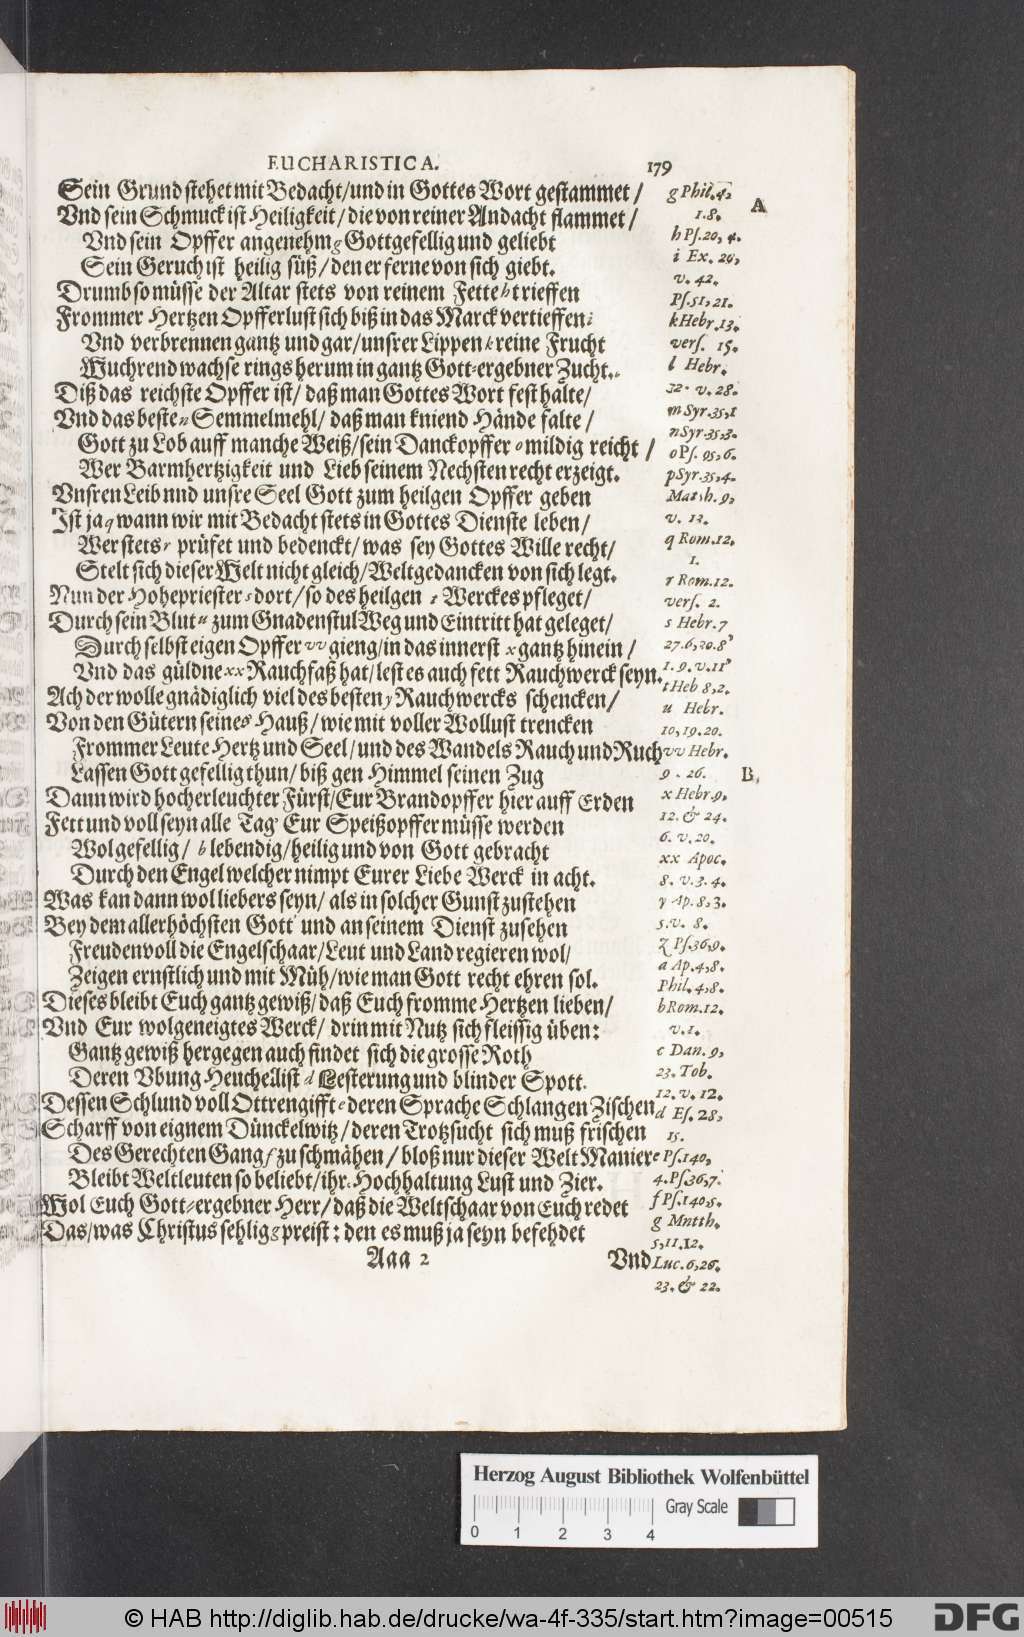 EUCHARISTICA. 179
Sein Grund stehet mit Bedacht/und in Gottes Wort gestammet /
Vnd sein Schmuck ist Heiligkeit/ die von reiner Andacht flammet /
Vnd sein Opffer angenehm g Gottgefellig und geliebt
Sein Geruch ist heilig süß /den er ferne von sich giebt.
Drumb so müsse der Altar stets von reinem Fette h trieffen
Frommer Hertzen Opfferlust sich biß in das Marck vertieffen i
Vnd verbrennen gantz und gar/unsrer Lippen k reine Frucht
Wuchrend wachse rings herum in gantz Gott-ergebner Zucht.
Diß das reichste Opffer ist/ daß man Gottes Wort fest halte/
Vnd das beste n Semmelmehl/ daß man kniend Hände falte /
Gott zu Lob auff manche Weiß/sein Danckopffer o mildig reicht /
Wer Barmhertzigkeit und Lieb seinem Nechsten recht erzeigt.
Vnsren Leib nnd unsre Seel Gott zum heilgen Opffer geben
Ist ja q wann wir mit Bedacht stets in Gottes Dienste leben/
Wer stets r prüfet und bedenckt/ was sey Gottes Wille recht/
Stelt sich dieser Welt nicht gleich/Weltgedancken von sich legt.
Nun der Hohepriester s dort/ so des heilgen t Werckes pfleget/
Durch sein Blut u zum Gnadenstul Weg und Eintritt hat geleget/
Durch selbst eigen Opffer vv gieng/in das innerst x gantz hinein /
Vnd das güldne xx Rauchfaß hat/lest es auch fett Rauchwerck seyn.
Ach der wolle gnädiglich viel des besten y Rauchwercks schencken/
Von den Gütern seines Hauß/ wie mit voller Wollust trencken
Frommer Leute Hertz und Seel/und des Wandels Rauch und Ruch
Lassen Gott gefellig thun/ biß gen Himmel seinen Zug
Dann wird hocherleuchter Fürst/Eur Brandopffer hier auff Erden
Fett und voll seyn alle Tag Eur Speißopffer müsse werden
Wolgefellig/ b lebendig/heilig und von Gott gebracht
Durch den Engel welcher nimpt Eurer Liebe Werck in acht.
Was kan dann wol liebers seyn/ als in solcher Gunst zustehen
Bey dem allerhöchsten Gott und an seinem Dienst zusehen
Freudenvoll die Engelschaar/Leut und Land regieren wol/
Zeigen ernstlich und mit Müh/wie man Gott recht ehren sol.
Dieses bleibt Euch gantz gewiß/daß Euch fromme Hertzen lieben/
Vnd Eur wolgeneigtes Werck/ drin mit Nutz sich fleissig üben:
Gantz gewiß hergegen auch findet sich die grosse Roth
Deren Vbung Heuchelist d Lesterung und blinder Spott.
Dessen Schlund voll Ottrengifft e deren Sprache Schlangen Zischen
Scharff von eignem Dünckelwitz/deren Trotzsucht sich muß frischen
Des Gerechten Gang f zu schmähen/ bloß nur dieser Welt Manier
Bleibt Weltleuten so beliebt/ihr Hochhaltung Lust und Zier.
Wol Euch Gott-ergebner Herr/ daß die Weltschaar von Euch redet
Das/was Christus sehlig g preist: den es muß ja seyn befehdet
Aaa 2 Vnd
g Phil. 4,
1.8.
h Ps. 20, 4.
i Ex. 29,
v. 42.
Ps. 51, 21.
k Hebr. 13.
vers. 15.
l Hebr.
32. v. 28.
m Syr. 35, 1
n Syr. 35, 3.
o Ps. 95, 6.
p Syr. 35, 4.
Matth. 9,
v. 13.
q Rom. 12.
1.
r Rom. 12.
vers. 2.
s Hebr. 7
27. 6, 20. 8
1. 9. v. 11
t Heb 8, 2.
u Hebr.
10, 19. 20.
vv Hebr.
9. 26.
x Hebr. 9.
12. & 24.
6. v. 20.
xx Apoc.
8. v. 3. 4.
y Ap. 8, 3.
5. v. 8.
z Ps. 36, 9.
a Ap. 4, 8.
Phil. 4, 8.
b Rom. 12.
v. 1.
c Dan. 9,
23. Tob.
12. v. 12.
d Es. 28,
15.
e Ps. 140,
4. Ps. 36, 7.
f Ps. 140, 5.
g Mntth.
5, 11. 12.
Luc. 6, 26.
23. & 22.
A
B.
Herzog August Bibliothek Wolfenbüttel
Gray Scale
0 1 2 3 4
© HAB http://diglib.hab.de/drucke/wa-4f-335/start.htm?image=00515
DFG